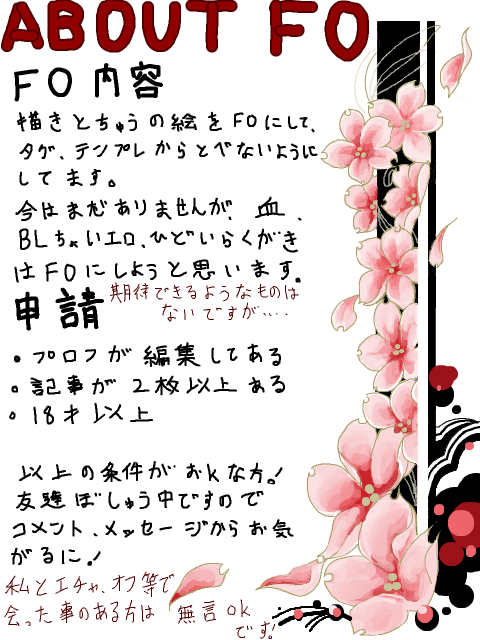 ABOUT FO
FO内容
描きとちゅうの絵をFOにして、
タグ、テンプレからとべないように
してます。
今はまだありませんが、血、
BLちゃいエロ、ひどいらくがき
はFOにしようと思います。
期待できるようなものは
ないですが‥‥
申請
・プロフが編集してある
・記事が2枚以上ある
・18才以上
以上の条件がおkな方。!
友達ぼしゅう中ですので
コメント、メッセージからお気
がるに。!
私とエチャ、オフ等で
会った事のある方は 無言ok
です!